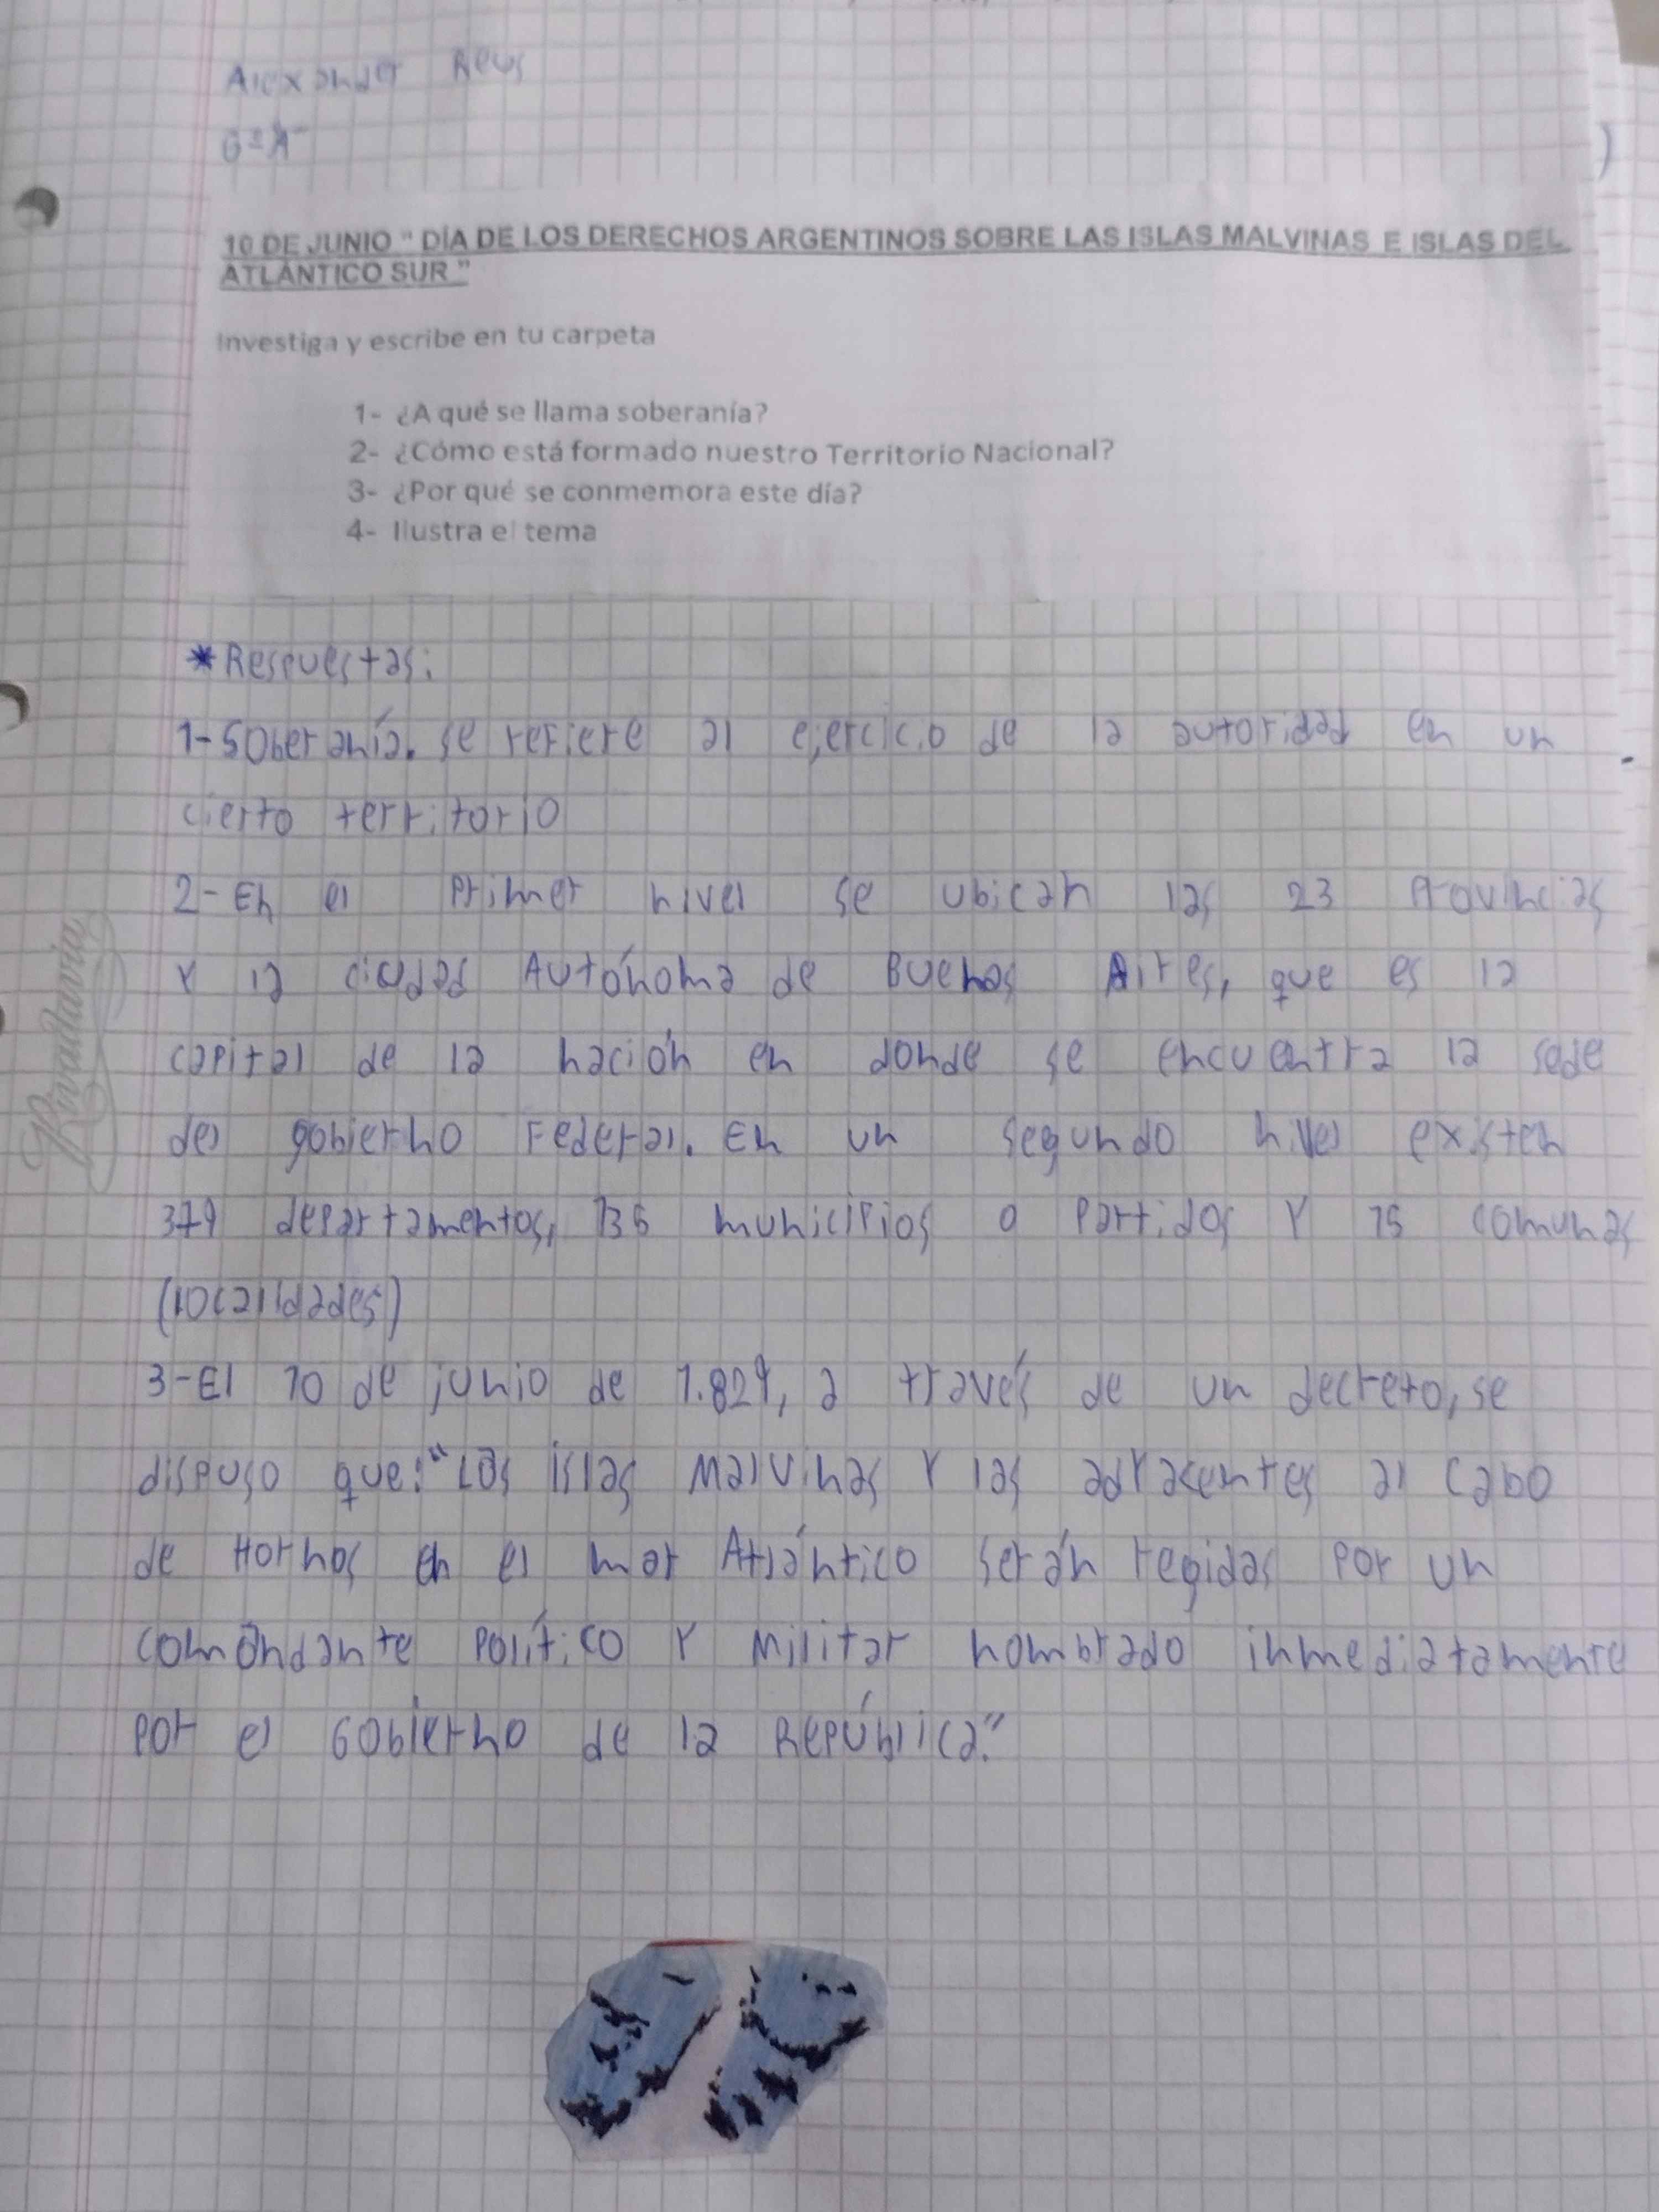 Alexander
6ºA
10 DE JUNIO " DÍA DE LOS DERECHOS ARGENTINOS SOBRE LAS ISLAS MALVINAS E ISLAS DEL
ATLÁNTICO SUR "
Investiga y escribe en tu carpeta
1- ¿A qué se llama soberanía?
2- ¿Cómo está formado nuestro Territorio Nacional?
3- ¿Por qué se conmemora este día?
4- Ilustra el tema
*Respuestas:
1-Soberanía. se refiere al ejercicio de la autoridad en un
cierto territorio
2-En el primer nivel se ubican las 23 Provincias
Y la ciudad Autónoma de Buenos Aires, que es la
capital de la nación en donde se encuentra la sede
del gobierno Federal. En un segundo nivel existen
379 departamentos, 135 municipios o Partidos Y 15 comunas
(localidades)
3-El 10 de junio de 1.829, a través de un decreto, se
dispuso que: "Las islas Malvinas Y las adyacentes al Cabo
de Hornos en el mar Atlántico serán regidas por un
comandante político Y Militar nombrado inmediatamente
por el Gobierno de la República."
Rivadavia